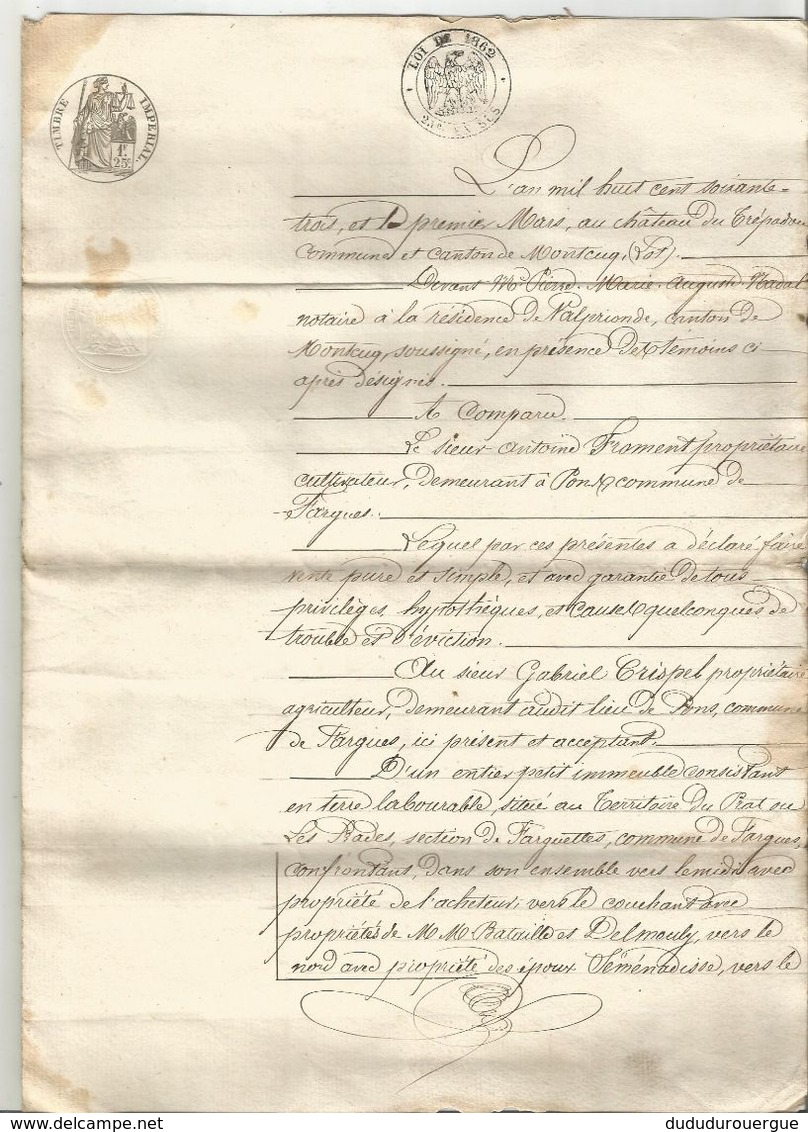 LOI DE 1862
25c EN SUS
TIMBRE IMPÉRIAL.
1F.
25c
L'an mil huit cent soixante-
trois, et le premier Mars, au château du Trépadou
commune et canton de Montcuq, (Lot).
Devant Me Pierre-Marie-Auguste Nadal
notaire à la résidence de Valprionde, canton de
Montcuq, soussigné, en présence des témoins ci-
après désignés.
A Comparu.
Le sieur Antoine Froment propriétaire
cultivateur, demeurant à Pons, commune de
Fargues.
Lequel par ces présentes a déclaré faire
vente pure et simple, et avec garantie de tous
privilèges, hypothèques, et causes quelconques de
trouble et d'éviction.
Au sieur Gabriel Crispel propriétaire
agriculteur, demeurant audit lieu de Pons, commune
de Fargues, ici présent et acceptant.
D'un entier petit immeuble consistant
en terre labourable, située au Territoire du Prat ou
Les Prades, section de Farguettes, commune de Fargues,
confrontant, dans son ensemble vers le midi avec
propriété de l'acheteur, vers le couchant avec
propriétés de M M Bataille et Delmouly, vers le
nord avec propriété des époux Séménadisse, vers le
dududurouergue